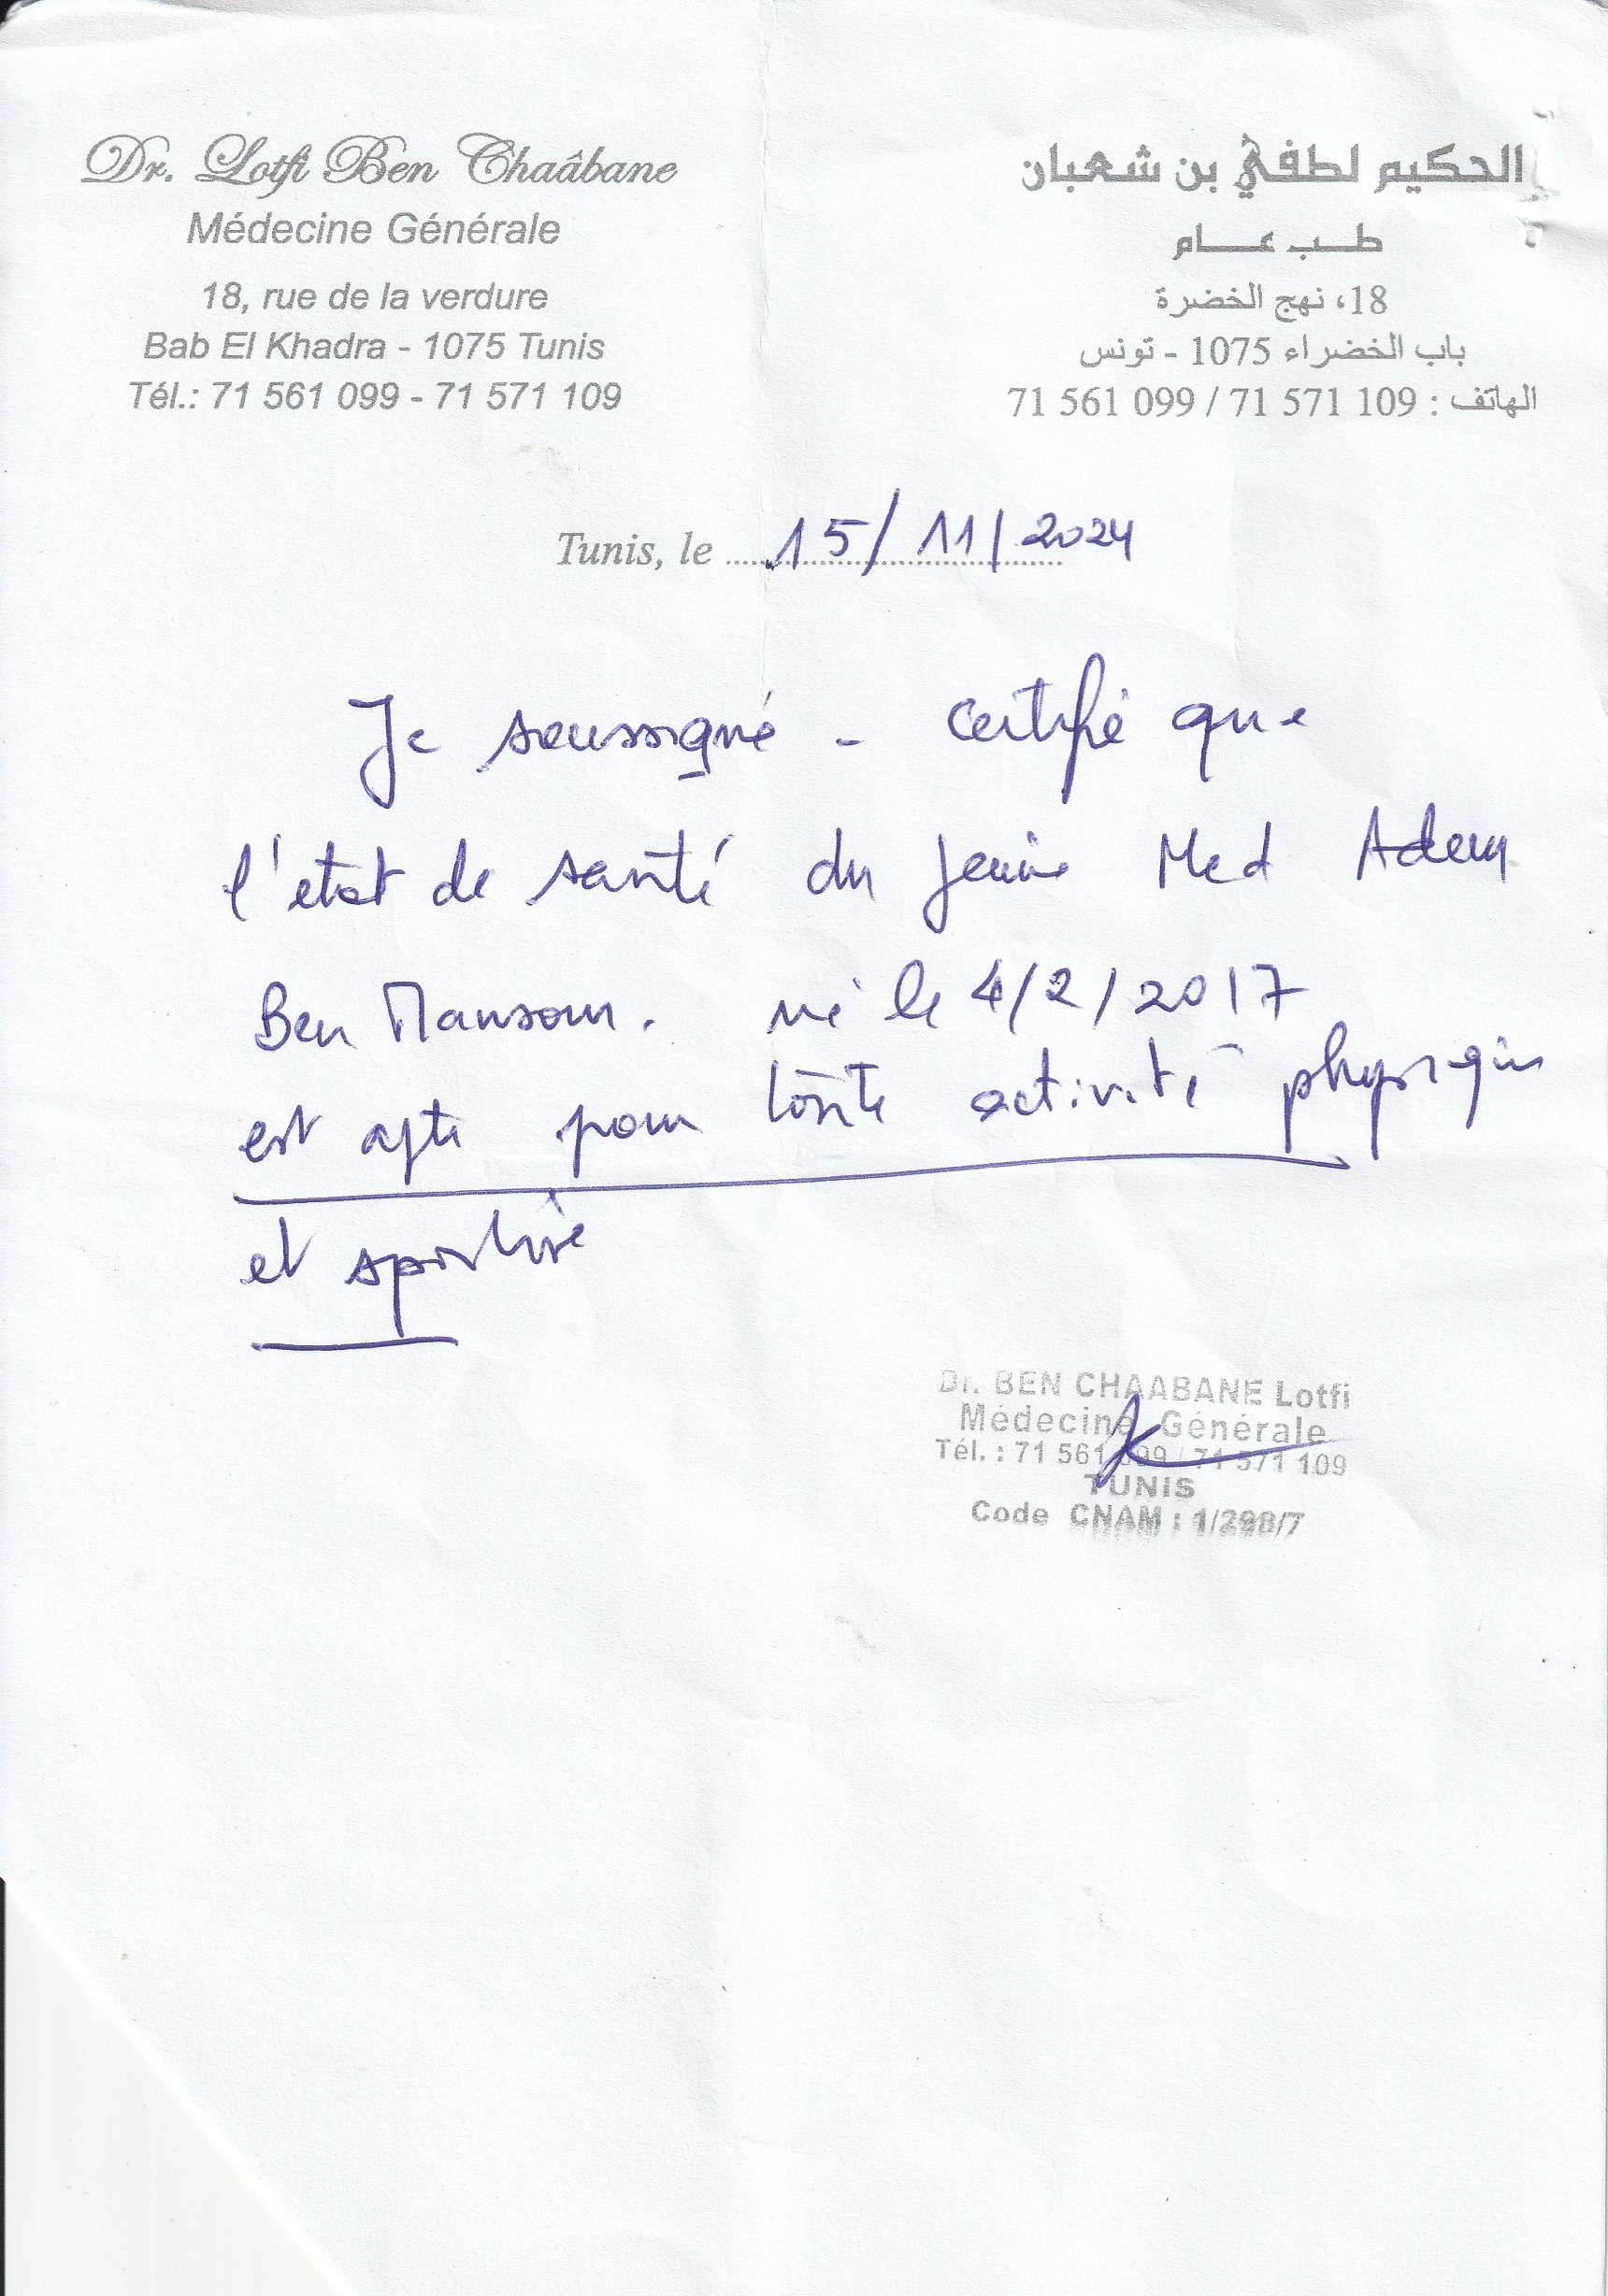 Dr. Lotfi Ben Chaâbane
Médecine Générale
18, rue de la verdure
Bab El Khadra - 1075 Tunis
Tél.: 71 561 099 - 71 571 109
الحكيم لطفي بن شعبان
طب عام
18، نهج الخضرة
باب الخضراء 1075 - تونس
الهاتف : 109 571 71 / 099 561 71
Tunis, le 15/11/2024
Je soussigné - certifie que
l'etat de santé du jeune Med Adem
Ben Mansour. né le 4/2/2017
est apte pour toute activité physique
et sportive
Dr. BEN CHAABANE Lotfi
Médecine Générale
Tél. : 71 561 099 / 71 571 109
TUNIS
Code CNAM : 1/298/7